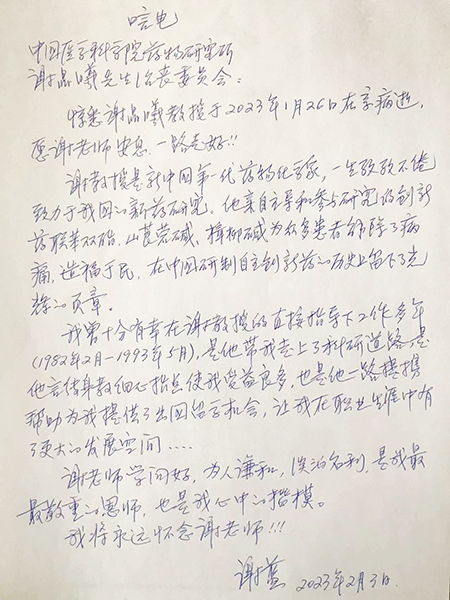 唁电
中国医学科学院药物研究所
谢晶曦先生治丧委员会：
惊悉谢晶曦教授于2023年1月26日在京病逝，
愿谢老师安息，一路走好!!
谢教授是新中国第一代药物化学家，一生孜孜不倦
致力于我国的新药研究。他亲自主导和参与研究的创新
药联苯双酯、山莨菪碱、樟柳碱为众多患者解除了病
痛，造福于民，在中国研制自主创新药的历史上留下了光
辉的页章。
我曾十分有幸在谢教授的直接指导下工作多年
(1982年2月—1993年5月)，是他带我走上了科研道路，是
他言传身教细心指点使我受益良多，也是他一路提携
帮助为我提供了出国留学机会，让我在职业生涯中有
了更大的发展空间.....
谢老师学问好，为人谦和，淡泊名利，是我最
最敬重的恩师，也是我心中的楷模。
我将永远怀念谢老师!!!
谢蓝 2023年2月3日